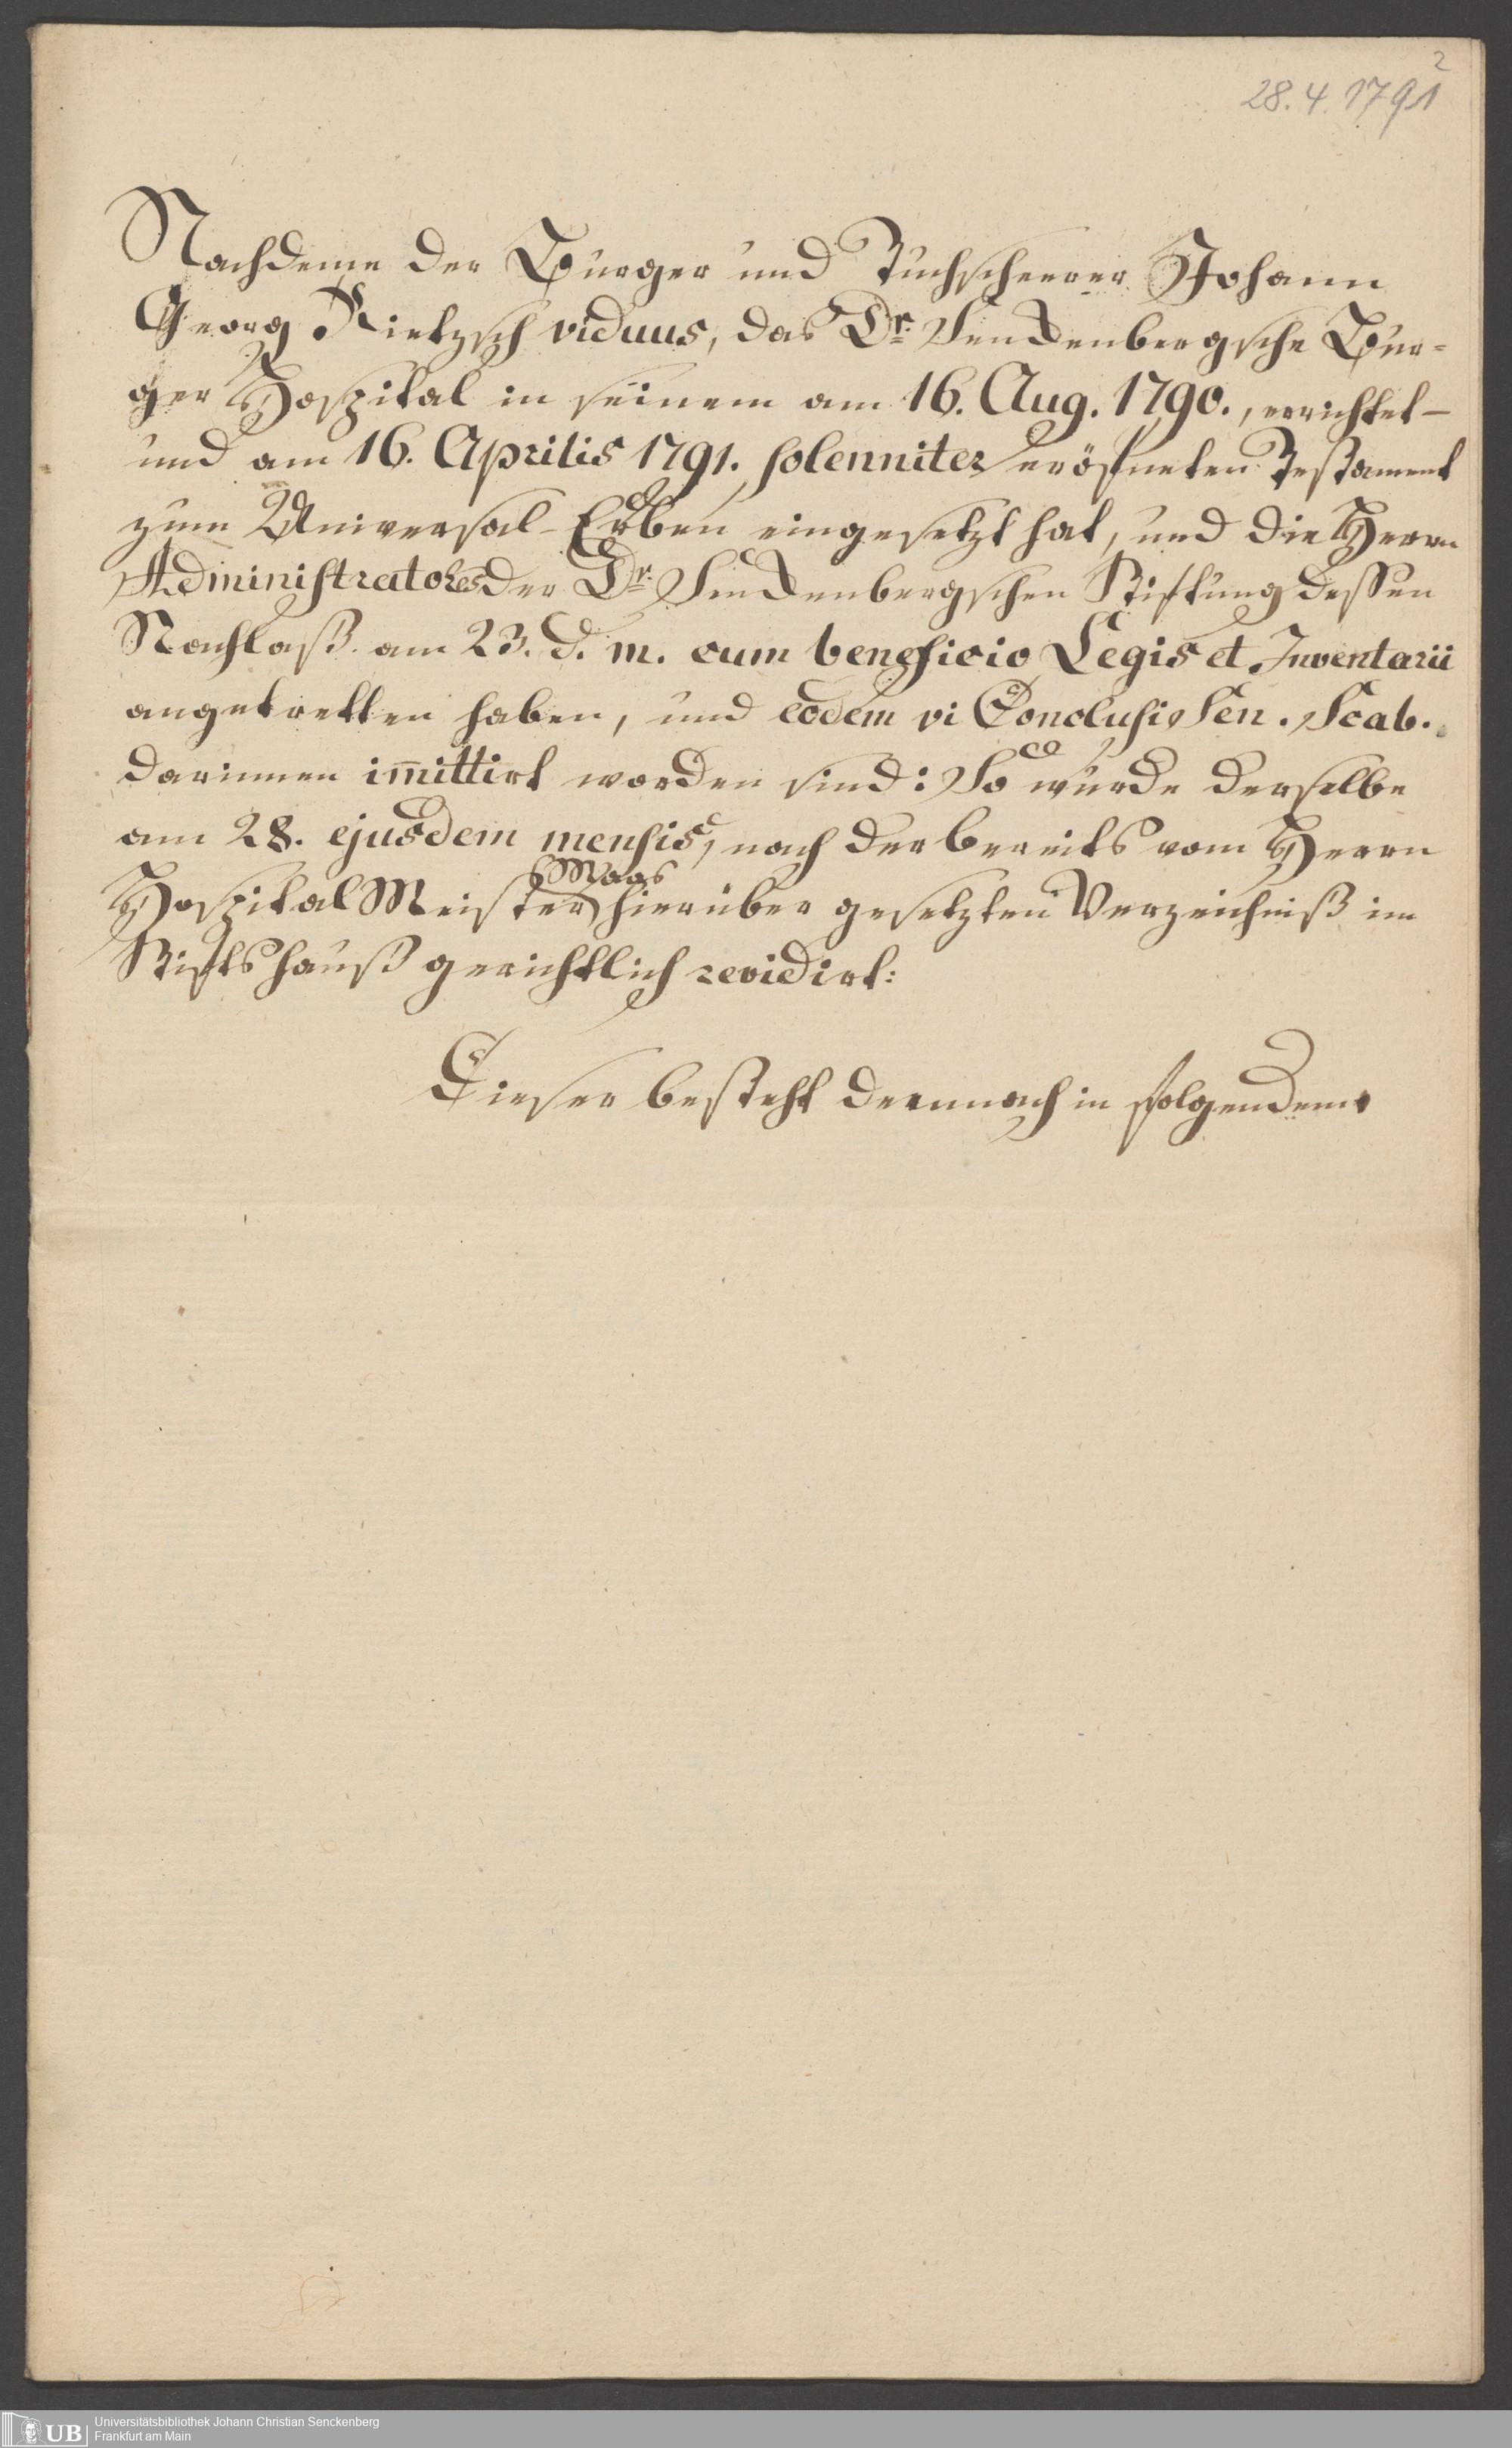 2
28.4.1791
Nachdeme der Burger und Tuchscheerer Johann
Georg Rietzsch viduus, das Dr. Senckenbergsche Bur-
ger Hospital in seinem am 16. Aug. 1790., errichtet-
und am 16. Aprilis 1791. solenniter eröfneten Testament
zum Universal-Erben eingesetzt hat, und die Herrn
Administratores der Dr. Senckenbergschen Stiftung dessen
Nachlaß am 23. d. m. cum beneficio Legis et Inventarii
angetretten haben, und eodem vi Conclusi Sen. Scab.
darinnen im̅ittirt worden sind: So wurde derselbe
am 28. ejusdem mensis, nach der bereits vom Herrn
Maas
Hospital Meister hierüber gesetzten Verzeichniß im
Stiftshauß gerichtlich revidirt:
Dieser besteht demnach in folgendem
UB
Universitätsbibliothek Johann Christian Senckenberg
Frankfurt am Main